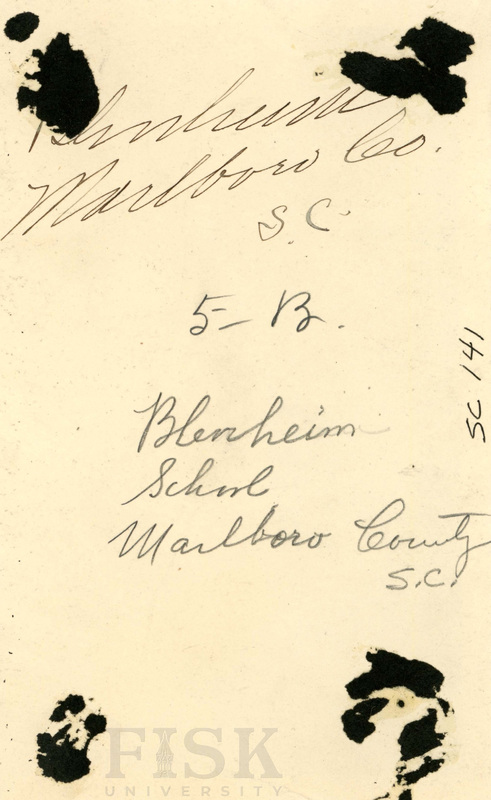 Blenheim
Marlboro Co.
S.C.
5-B.
Blenheim
School
Marlboro County
S.C.
SC 141
FISK
UNIVERSITY